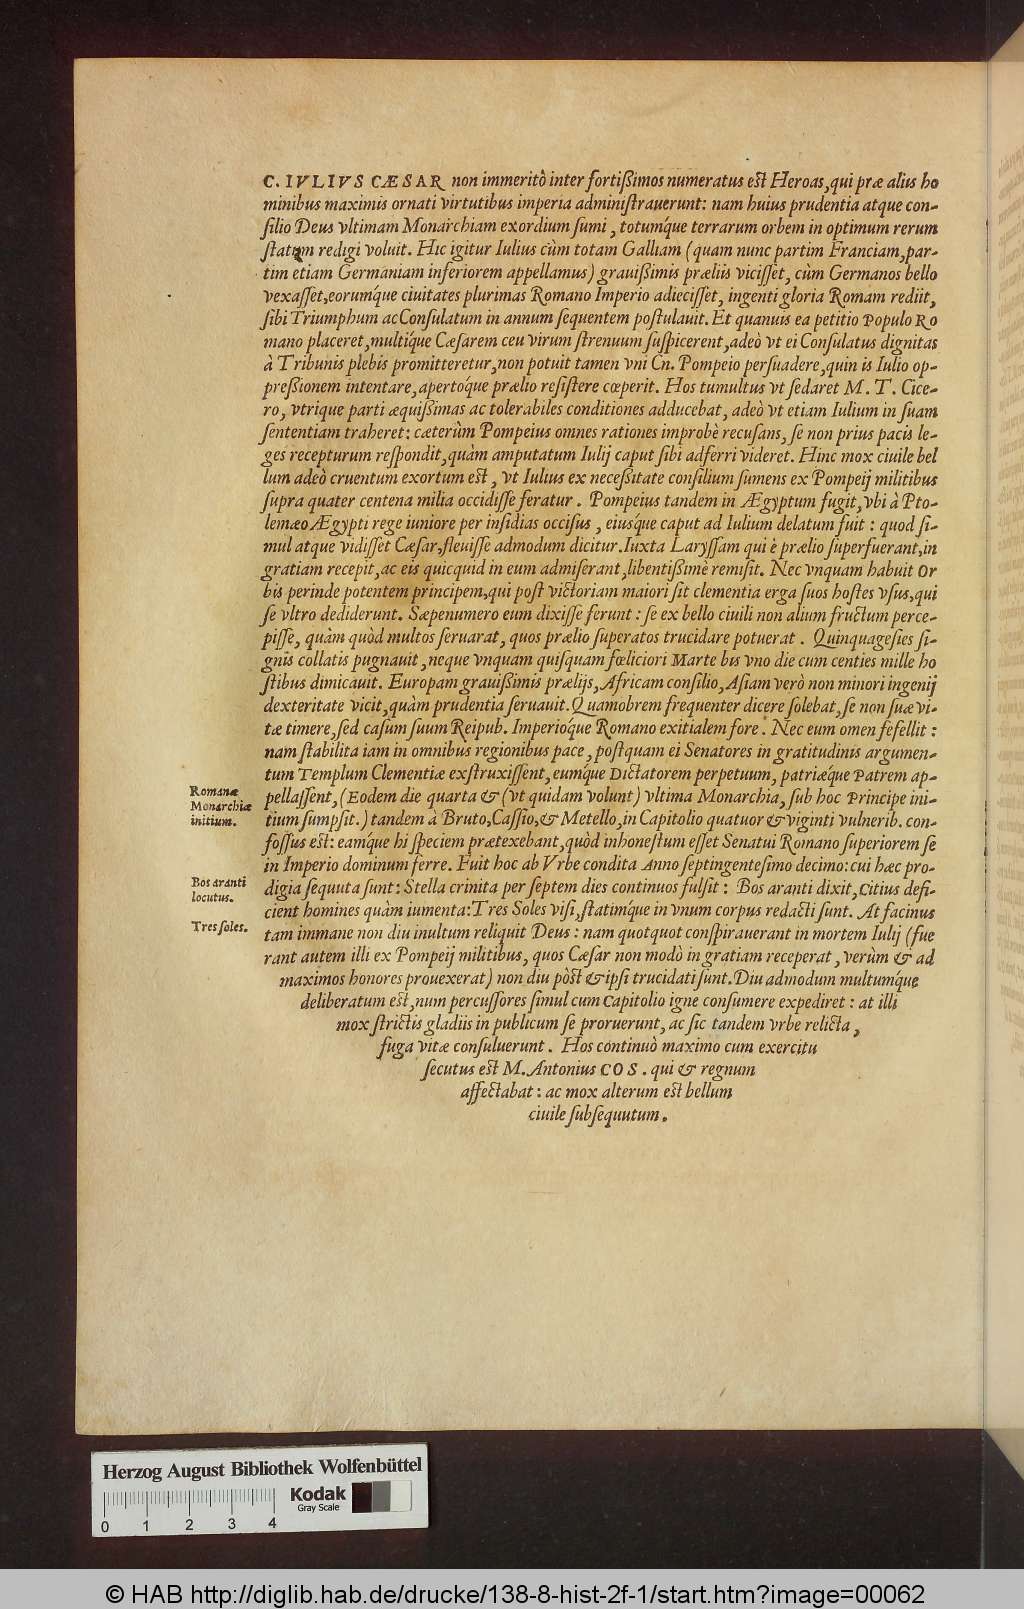 C. IVLIVS CÆSAR non immeritò inter fortißimos numeratus est Heroas, qui præ aliis ho
minibus maximis ornati virtutibus imperia adminiſtrauerunt: nam huius prudentia atque con-
ſilio Deus vltimam Monarchiam exordium ſumi, totumq́ue terrarum orbem in optimum rerum
ſtatum redigi voluit. Hic igitur Iulius cùm totam Galliam (quam nunc partim Franciam, par-
tim etiam Germaniam inferiorem appellamus) grauißimis præliis viciſſet, cùm Germanos bello
vexaſſet, eorumq́ue ciuitates plurimas Romano Imperio adieciſſet, ingenti gloria Romam rediit,
ſibi Triumphum ac Conſulatum in annum ſequentem poſtulauit. Et quanuis ea petitio Populo Ro
mano placeret, multiq́ue Cæſarem ceu virum ſtrenuum ſuſpicerent, adeò vt ei Conſulatus dignitas
à Tribunis plebis promitteretur, non potuit tamen vni Cn. Pompeio perſuadere, quin is Iulio op-
preßionem intentare, apertoq́ue prælio reſiſtere cœperit. Hos tumultus vt ſedaret M. T. Cice-
ro, vtrique parti æquißimas ac tolerabiles conditiones adducebat, adeò vt etiam Iulium in ſuam
ſententiam traheret: cæterùm Pompeius omnes rationes improbè recuſans, ſe non prius pacis le-
ges recepturum reſpondit, quàm amputatum Iulij caput ſibi adferri videret. Hinc mox ciuile bel
lum adeò cruentum exortum est, vt Iulius ex neceßitate conſilium ſumens ex Pompeij militibus
ſupra quater centena milia occidiſſe feratur. Pompeius tandem in Ægyptum fugit, vbi à Pto-
lemæo Ægypti rege iuniore per inſidias occiſus, eiusq́ue caput ad Iulium delatum fuit: quod ſi-
mul atque vidiſſet Cæſar, fleuiſſe admodum dicitur. Iuxta Laryſſam qui è prælio ſuperfuerant, in
gratiam recepit, ac eis quicquid in eum admiſerant, libentißimè remiſit. Nec vnquam habuit Or
bis perinde potentem principem, qui poſt victoriam maiori ſit clementia erga ſuos hoſtes vſus, qui
ſe vltro dediderunt. Sæpenumero eum dixiſſe ferunt: ſe ex bello ciuili non alium fructum perce-
piſſe, quàm quòd multos ſeruarat, quos prælio ſuperatos trucidare potuerat. Quinquageſies ſi-
gnis collatis pugnauit, neque vnquam quiſquam fœliciori Marte bis vno die cum centies mille ho
ſtibus dimicauit. Europam grauißimis prælijs, Africam conſilio, Aſiam verò non minori ingenij
dexteritate vicit, quàm prudentia ſeruauit. Quamobrem frequenter dicere ſolebat, ſe non ſuæ vi-
tæ timere, ſed caſum ſuum Reipub. Imperioq́ue Romano exitialem fore. Nec eum omen fefellit:
nam ſtabilita iam in omnibus regionibus pace, poſtquam ei Senatores in gratitudinis argumen-
tum Templum Clementiæ exſtruxiſſent, eumq́ue Dictatorem perpetuum, patriæq́ue Patrem ap-
Romanæ
Monarchiæ
initium.
pellaſſent, (Eodem die quarta & (vt quidam volunt) vltima Monarchia, ſub hoc Principe ini-
tium ſumpſit.) tandem à Bruto, Caſſio, & Metello, in Capitolio quatuor & viginti vulnerib. con-
foſſus est: eamq́ue hi ſpeciem prætexebant, quòd inhoneſtum eſſet Senatui Romano ſuperiorem ſe
in Imperio dominum ferre. Fuit hoc ab Vrbe condita Anno ſeptingenteſimo decimo: cui hæc pro-
Bos aranti
locutus.
digia ſequuta ſunt: Stella crinita per ſeptem dies continuos fulſit: Bos aranti dixit, Citius defi-
cient homines quàm iumenta: Tres Soles viſi, ſtatimq́ue in vnum corpus redacti ſunt. At facinus
Tres ſoles.
tam immane non diu inultum reliquit Deus: nam quotquot conſpirauerant in mortem Iulij (fue
rant autem illi ex Pompeij militibus, quos Cæſar non modò in gratiam receperat, verùm & ad
maximos honores prouexerat) non diu pòst & ipſi trucidati ſunt. Diu admodum multumq́ue
deliberatum est, num percuſſores ſimul cum Capitolio igne conſumere expediret: at illi
mox ſtrictis gladiis in publicum ſe proruerunt, ac ſic tandem vrbe relicta,
fuga vitæ conſuluerunt. Hos continuò maximo cum exercitu
ſecutus est M. Antonius COS. qui & regnum
affectabat: ac mox alterum est bellum
ciuile ſubſequutum.
Herzog August Bibliothek Wolfenbüttel
Kodak
Gray Scale
0 1 2 3 4
© HAB http://diglib.hab.de/drucke/138-8-hist-2f-1/start.htm?image=00062